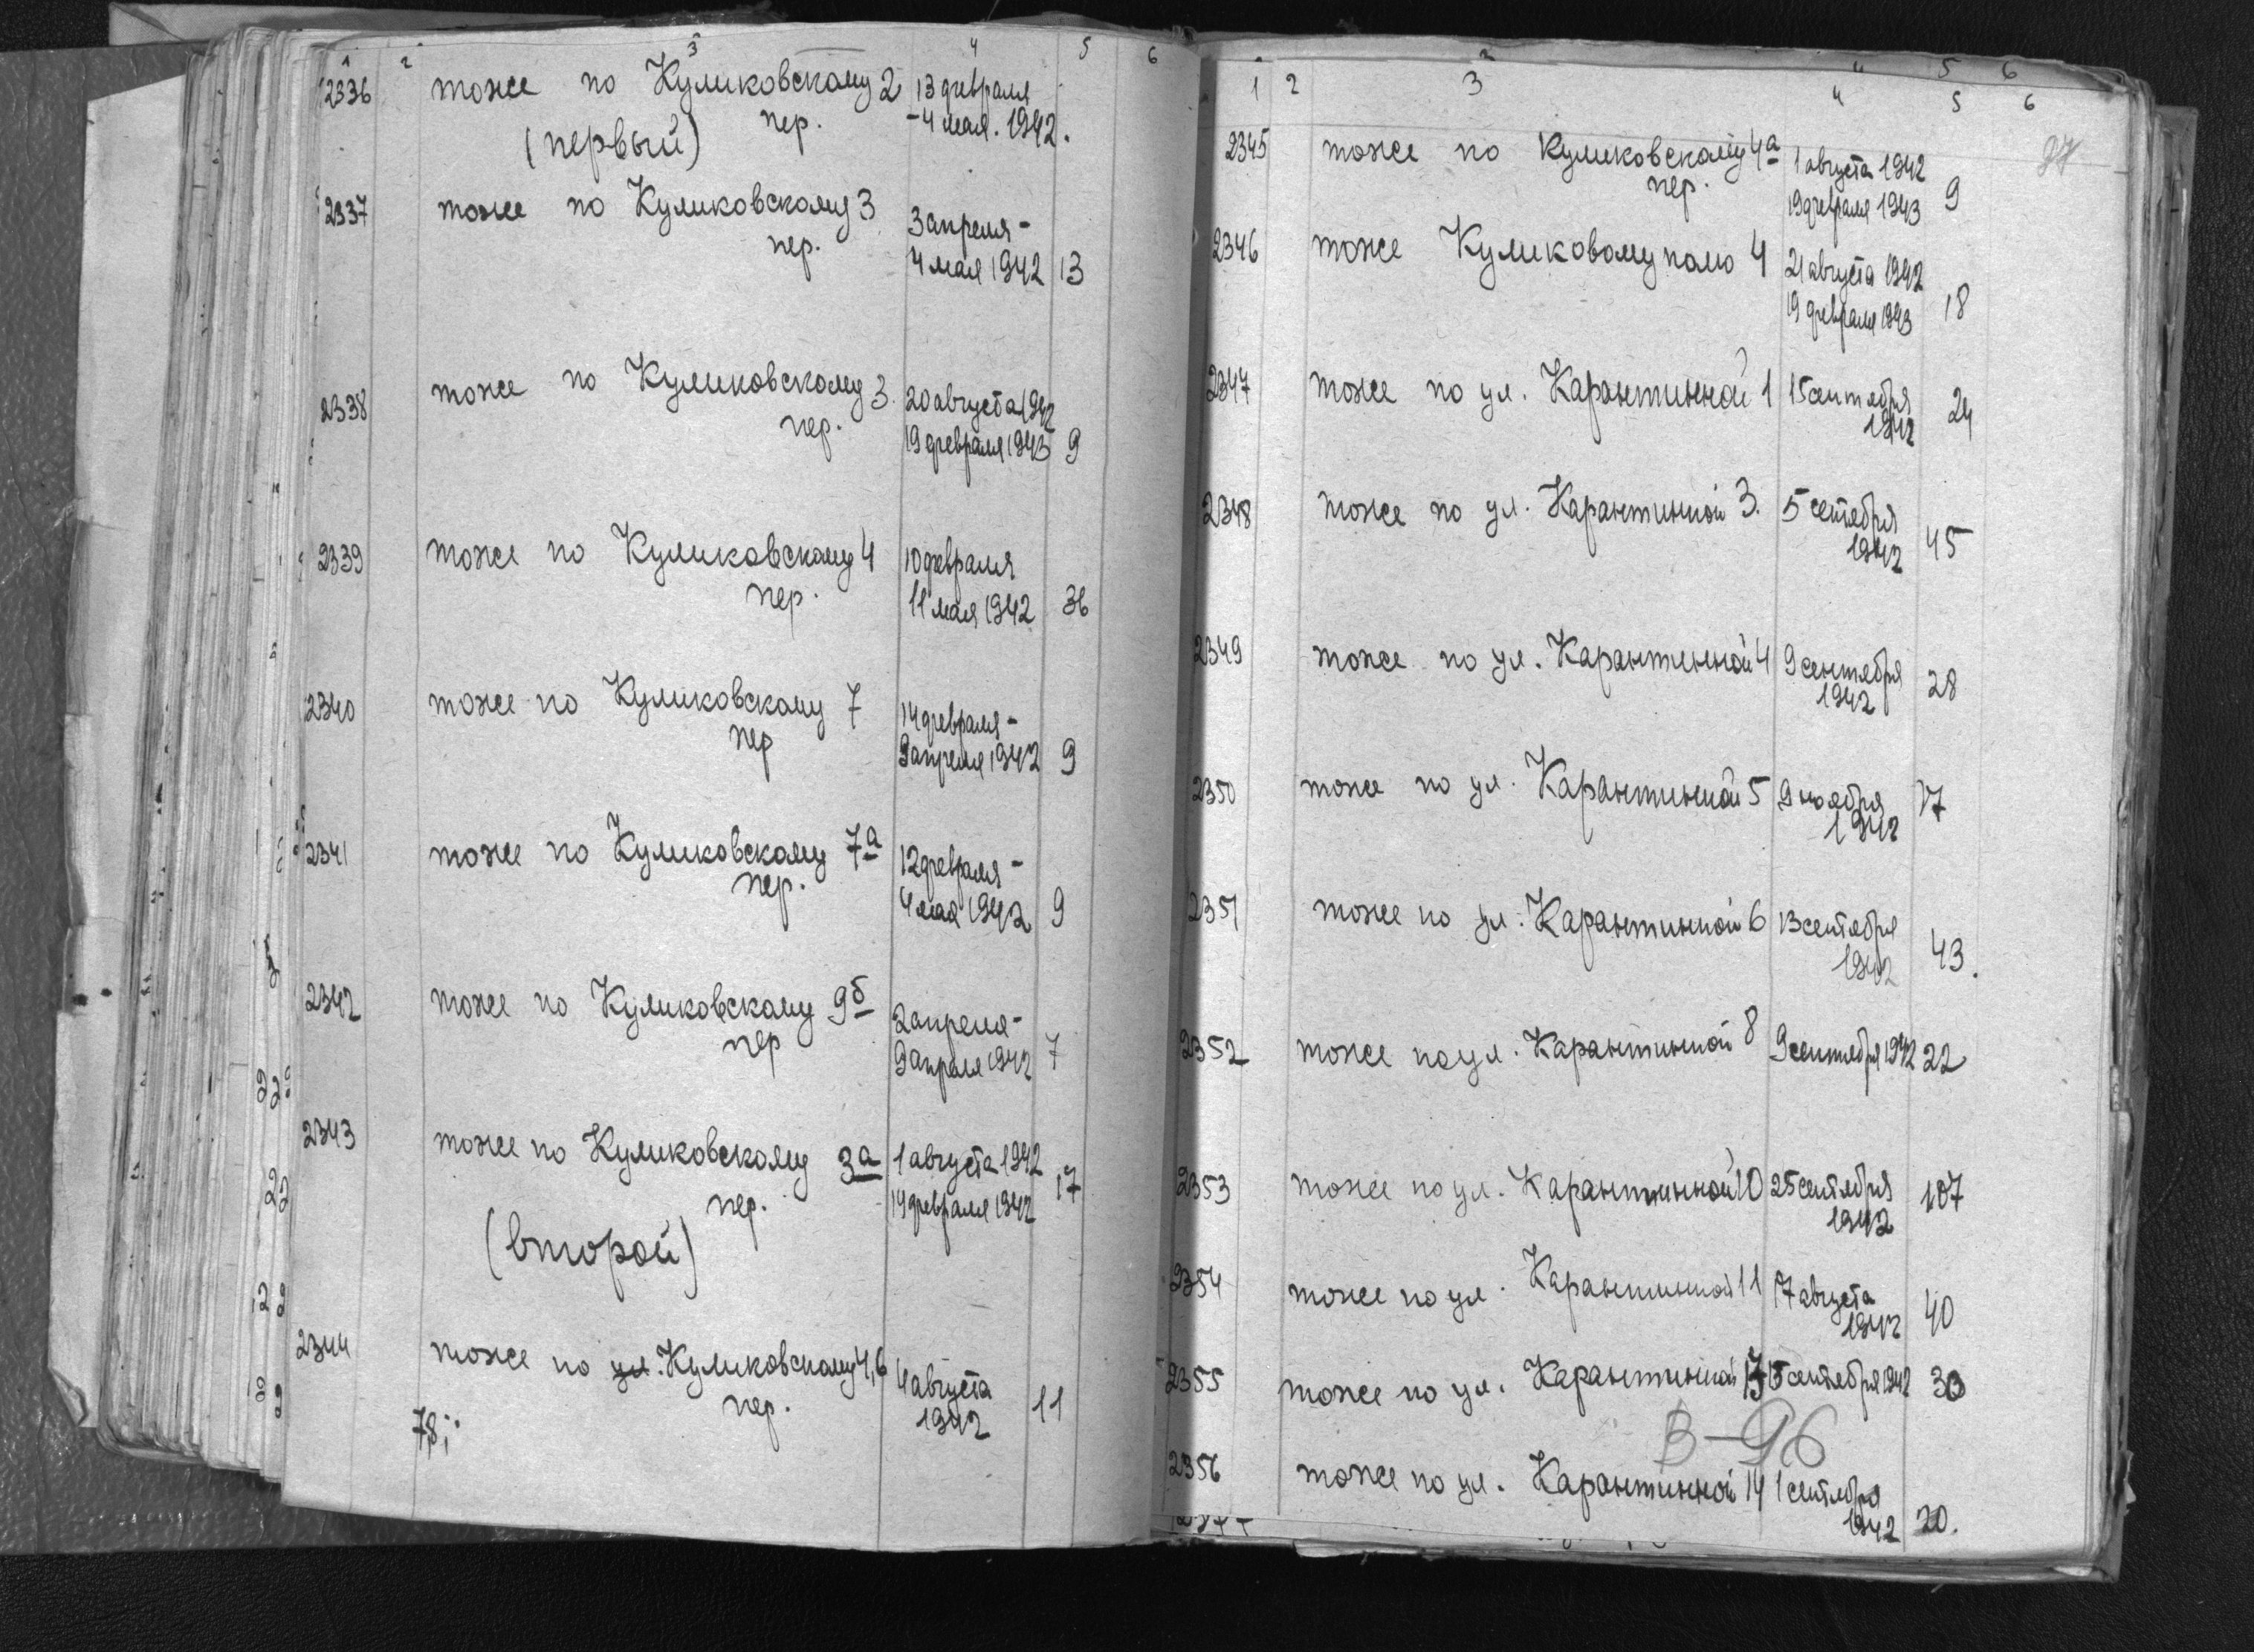 1 2 3 4 5 6
2336 тоже по Куликовскому 2 13 февраля
(первый) пер. -4 мая. 1942.
2337 тоже по Куликовскому 3
пер. 3 апреля -
4 мая 1942 13
2338 тоже по Куликовскому 3. 20 августа 1942
пер. 19 февраля 1943 9
2339 тоже по Куликовскому 4 10 февраля
пер. 11 мая 1942 36
2340 тоже по Куликовскому 7 14 февраля -
пер 9 апреля 1942 9
2341 тоже по Куликовскому 7а 12 февраля -
пер. 4 мая 1942 9
2342 тоже по Куликовскому 9б 2 апреля -
пер 9 апреля 1942 7
2343 тоже по Куликовскому 3а 1 августа 1942
пер. 19 февраля 1942 17
(второй)
2344 тоже по ул. Куликовскому 4,6
7,8; пер. 4 августа
1942 11
1 2 3 4 5 6
5 6
2345 тоже по Куликовскому 4а 1 августа 1942
пер. 19 февраля 1943 9
2346 тоже Куликовому полю 4 21 августа 1942
19 февраля 1943 18
2347 тоже по ул. Карантинной 1 15 сентября
1942 24
2348 тоже по ул. Карантинной 3. 5 сентября
1942 45
2349 тоже по ул. Карантинной 4 9 сентября
1942 28
2350 тоже по ул. Карантинной 5 9 ноября 17
1942
2351 тоже по ул. Карантинной 6 13 сентября
1942 43.
2352 тоже по ул. Карантинной 8 9 сентября 1942 22
2353 тоже по ул. Карантинной 10 25 сентября 107
1942
2354 тоже по ул. Карантинной 11 17 августа
1942 40
2355 тоже по ул. Карантинной 13 15 сентября 1942 30
В-96
2356 тоже по ул. Карантинной 14 1 сентября
1942 20.